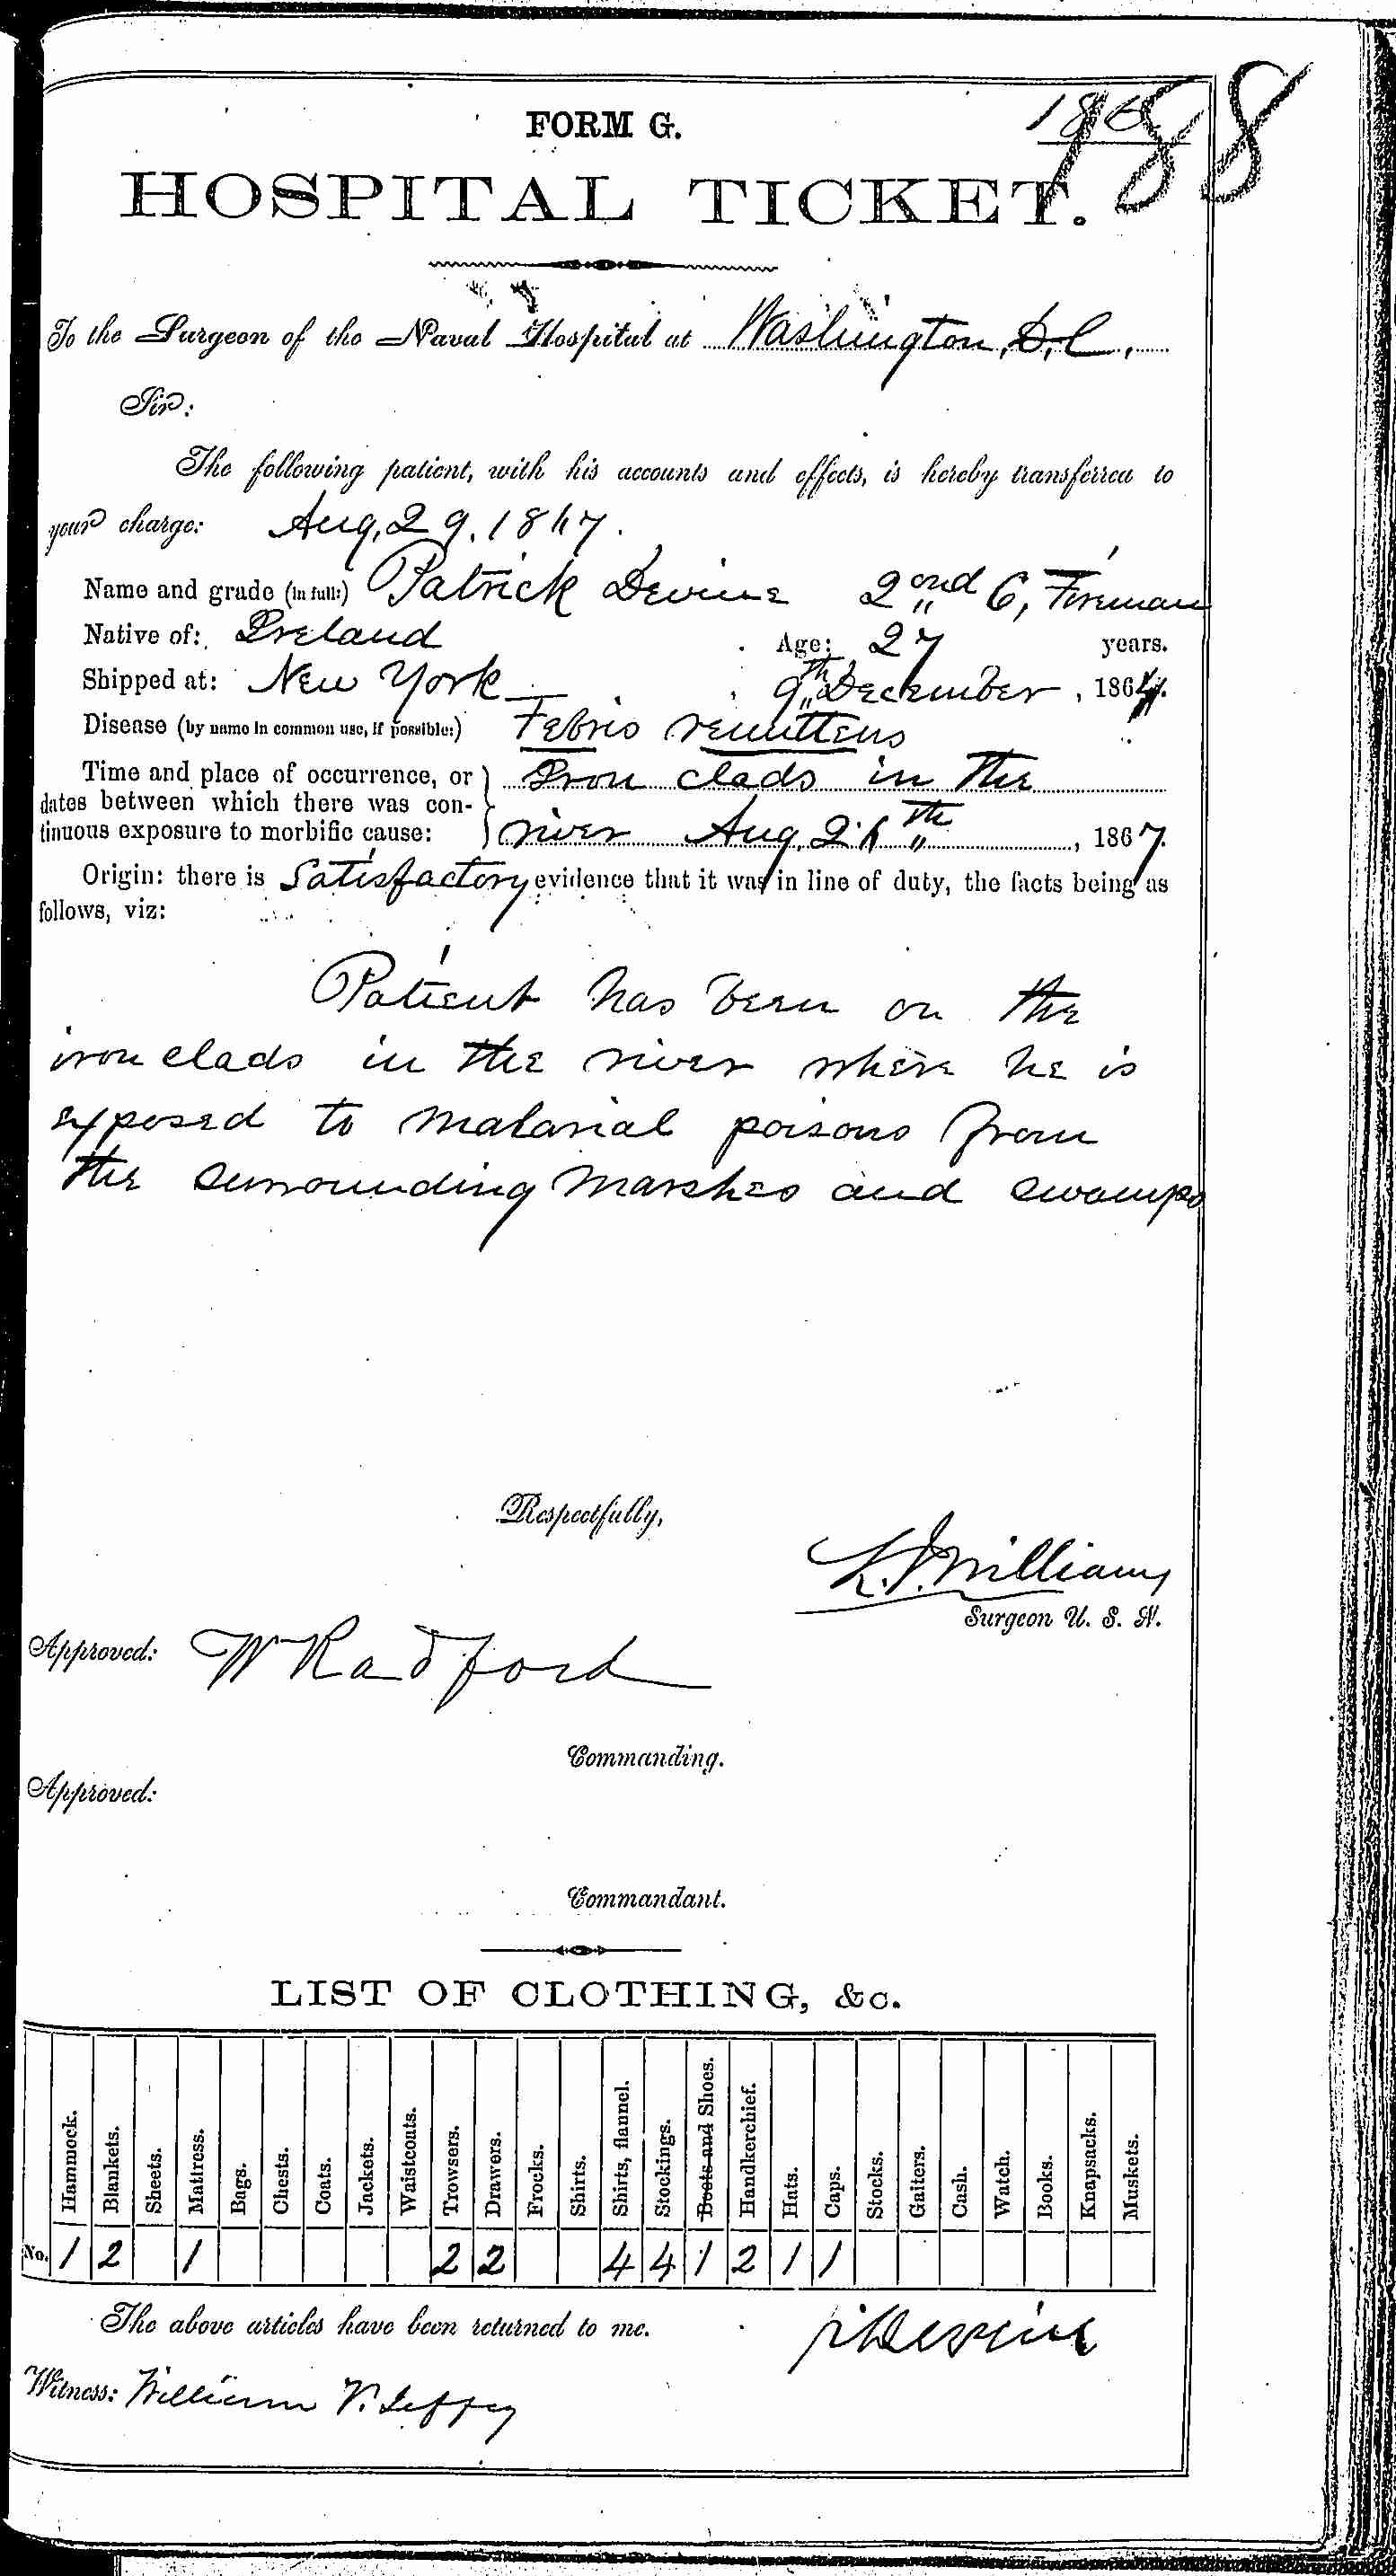 FORM G.
188
HOSPITAL TICKET.
To the Surgeon of the Naval Hospital at Washington, D, C,
Sir:
The following patient, with his accounts and effects, is hereby transferred to
your charge: Aug, 29, 1867.
Name and grade (in full:) Patrick Devine 2nd C, Fireman
Native of: Ireland Age: 27 years.
Shipped at: New York 9th December, 1864.
Disease (by name in common use, if possible:) Febris remittens
Time and place of occurrence, or Iron clads in the
dates between which there was con-
tinuous exposure to morbific cause: river Aug, 26th, 1867.
Origin: there is Satisfactory evidence that it was in line of duty, the facts being as
follows, viz:
Patient has been on the
iron clads in the river where he is
exposed to malarial poisons from
the surrounding marshes and swamps
Respectfully,
Williams
Surgeon U. S. N.
Approved: W Radford
Commanding.
Approved:
Commandant.
LIST OF CLOTHING, &c.
Hammock. Blankets. Sheets. Mattress. Bags. Chests. Coats. Jackets. Waistcoats. Trowsers. Drawers. Frocks. Shirts. Shirts, flannel. Stockings. Boots and Shoes. Handkerchief. Hats. Caps. Stocks. Gaiters. Cash. Watch. Books. Knapsacks. Muskets.
No. 1 2 1 2 2 4 4 1 2 1 1
The above articles have been returned to me. P Devine
Witness: William V.